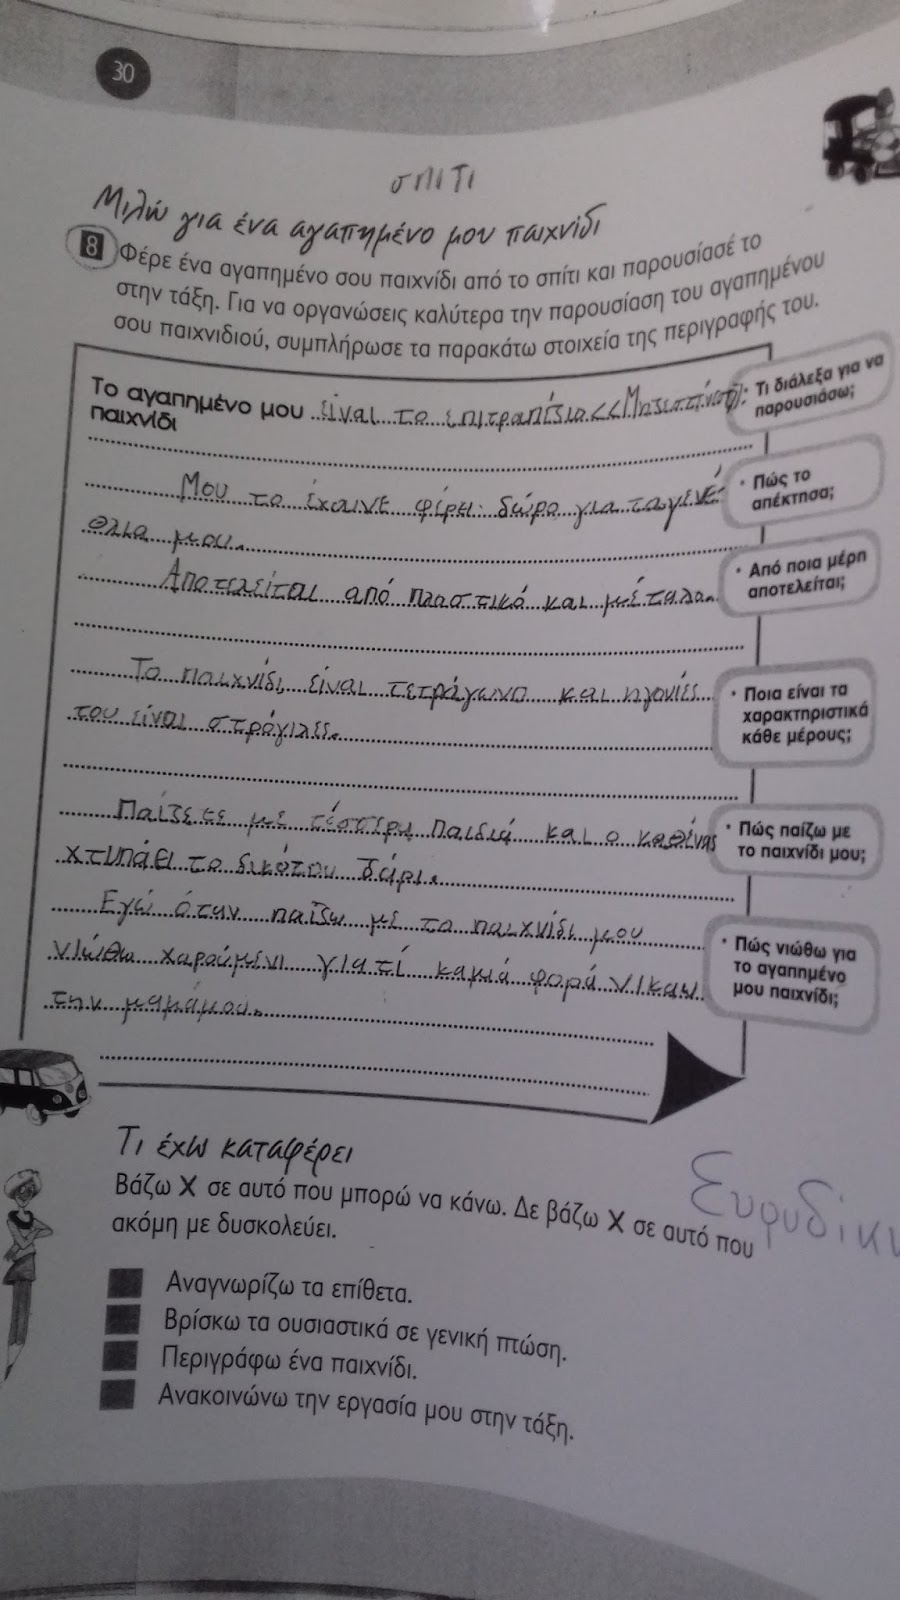 30
σπιτι
Μιλώ για ένα αγαπημένο μου παιχνίδι
8 Φέρε ένα αγαπημένο σου παιχνίδι από το σπίτι και παρουσίασέ το
στην τάξη. Για να οργανώσεις καλύτερα την παρουσίαση του αγαπημένου
σου παιχνιδιού, συμπλήρωσε τα παρακάτω στοιχεία της περιγραφής του.
Το αγαπημένο μου είναι το επιτραπέζιο <<
παιχνίδι
• Τι διάλεξα για να
παρουσιάσω;
Μου το έχουνε φέρει δώρο για τα γενέ-
θλια μου.
• Πώς το
απέκτησα;
Αποτελείται από πλαστικό και μέταλο.
• Από ποια μέρη
αποτελείται;
Το παιχνίδι είναι τετράγωνο και η γονίες
του είναι στρόγιλες.
• Ποια είναι τα
χαρακτηριστικά
κάθε μέρους;
Παίζετε με τέσσερα παιδιά και ο καθένας
χτυπάει το δικότου
• Πώς παίζω με
το παιχνίδι μου;
Εγώ όταν παίζω με το παιχνίδι μου
νιώθω χαρούμενι γιατί καμιά φορά νικαω
την μαμάμου.
• Πώς νιώθω για
το αγαπημένο
μου παιχνίδι;
Τι έχω καταφέρει
Βάζω Χ σε αυτό που μπορώ να κάνω. Δε βάζω Χ σε αυτό που
ακόμη με δυσκολεύει.
Ευρυδίκη
Αναγνωρίζω τα επίθετα.
Βρίσκω τα ουσιαστικά σε γενική πτώση.
Περιγράφω ένα παιχνίδι.
Ανακοινώνω την εργασία μου στην τάξη.